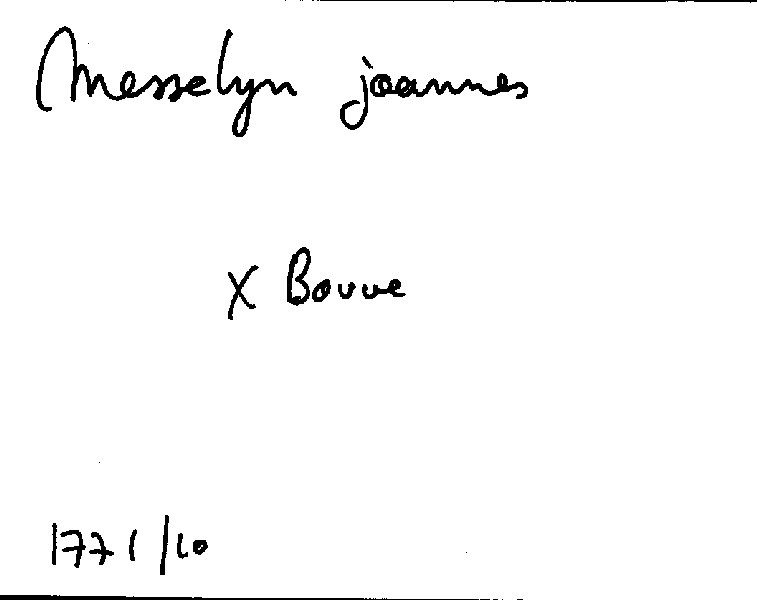 Messelyn joannes
X Bouve
1771/10